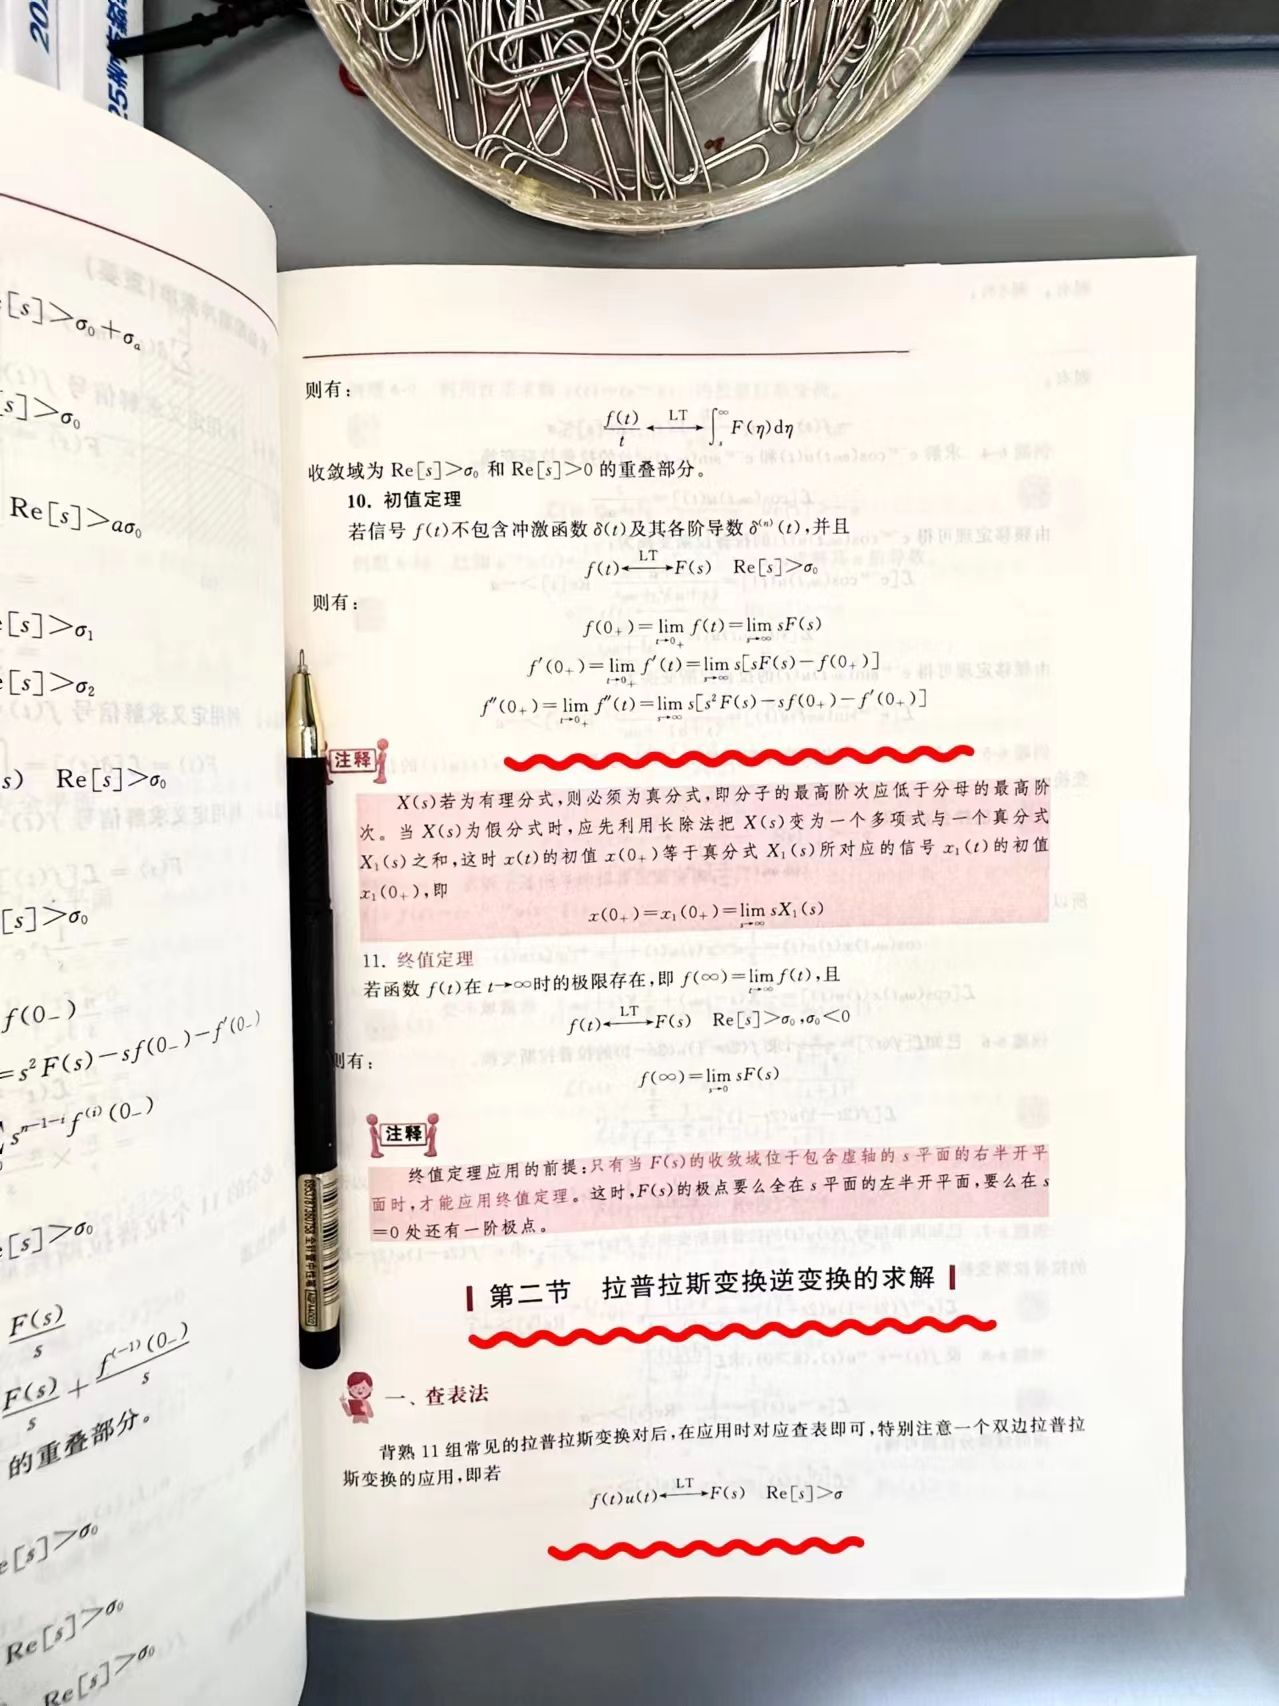 202
25版
e[s]>σ₀+σₐ
s]>σ₀
Re[s]>aσ₀
e[s]>σ₁
e[s]>σ₂
s) Re[s]>σ₀
[s]>σ₀
f(0₋)
=s²F(s)-sf(0₋)-f′(0₋)
sⁿ⁻¹⁻ⁱf⁽ⁱ⁾(0₋)
e[s]>σ₀
F(s)/s
F(s)/s+f⁽⁻¹⁾(0₋)/s
的重叠部分。
e[s]>σ₀
Re[s]>σ₀
Re[s]>σ₀
则有:
f(t)/t ←LT→ ∫ₛ^∞ F(η)dη
收敛域为 Re[s]>σ₀ 和 Re[s]>0 的重叠部分。
10. 初值定理
若信号 f(t)不包含冲激函数 δ(t)及其各阶导数 δ⁽ⁿ⁾(t),并且
f(t)←LT→F(s) Re[s]>σ₀
则有:
f(0₊)=lim t→0₊ f(t)=lim s→∞ sF(s)
f′(0₊)=lim t→0₊ f′(t)=lim s→∞ s[sF(s)-f(0₊)]
f″(0₊)=lim t→0₊ f″(t)=lim s→∞ s[s²F(s)-sf(0₊)-f′(0₊)]
注释
X(s)若为有理分式,则必须为真分式,即分子的最高阶次应低于分母的最高阶
次。当 X(s)为假分式时,应先利用长除法把 X(s)变为一个多项式与一个真分式
X₁(s)之和,这时 x(t)的初值 x(0₊)等于真分式 X₁(s)所对应的信号 x₁(t)的初值
x₁(0₊),即
x(0₊)=x₁(0₊)=lim s→∞ sX₁(s)
11. 终值定理
若函数 f(t)在 t→∞时的极限存在,即 f(∞)=lim t→∞ f(t),且
f(t)←LT→F(s) Re[s]>σ₀,σ₀<0
则有:
f(∞)=lim s→0 sF(s)
注释
终值定理应用的前提:只有当 F(s)的收敛域位于包含虚轴的 s 平面的右半开平
面时,才能应用终值定理。这时,F(s)的极点要么全在 s 平面的左半开平面,要么在 s
=0 处还有一阶极点。
第二节 拉普拉斯变换逆变换的求解
一、查表法
背熟 11 组常见的拉普拉斯变换对后,在应用时对应查表即可,特别注意一个双边拉普拉
斯变换的应用,即若
f(t)u(t)←LT→F(s) Re[s]>σ